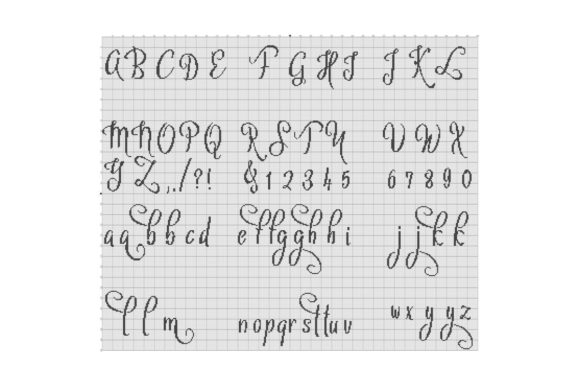 A B C D E F G H I J K L
M N O P Q R S T U V W X
Y Z , . / ? ! & 1 2 3 4 5 6 7 8 9 0
a q b b c d e f f g g h h i j j k k
l l m n o p q r s t t u v w x y y z